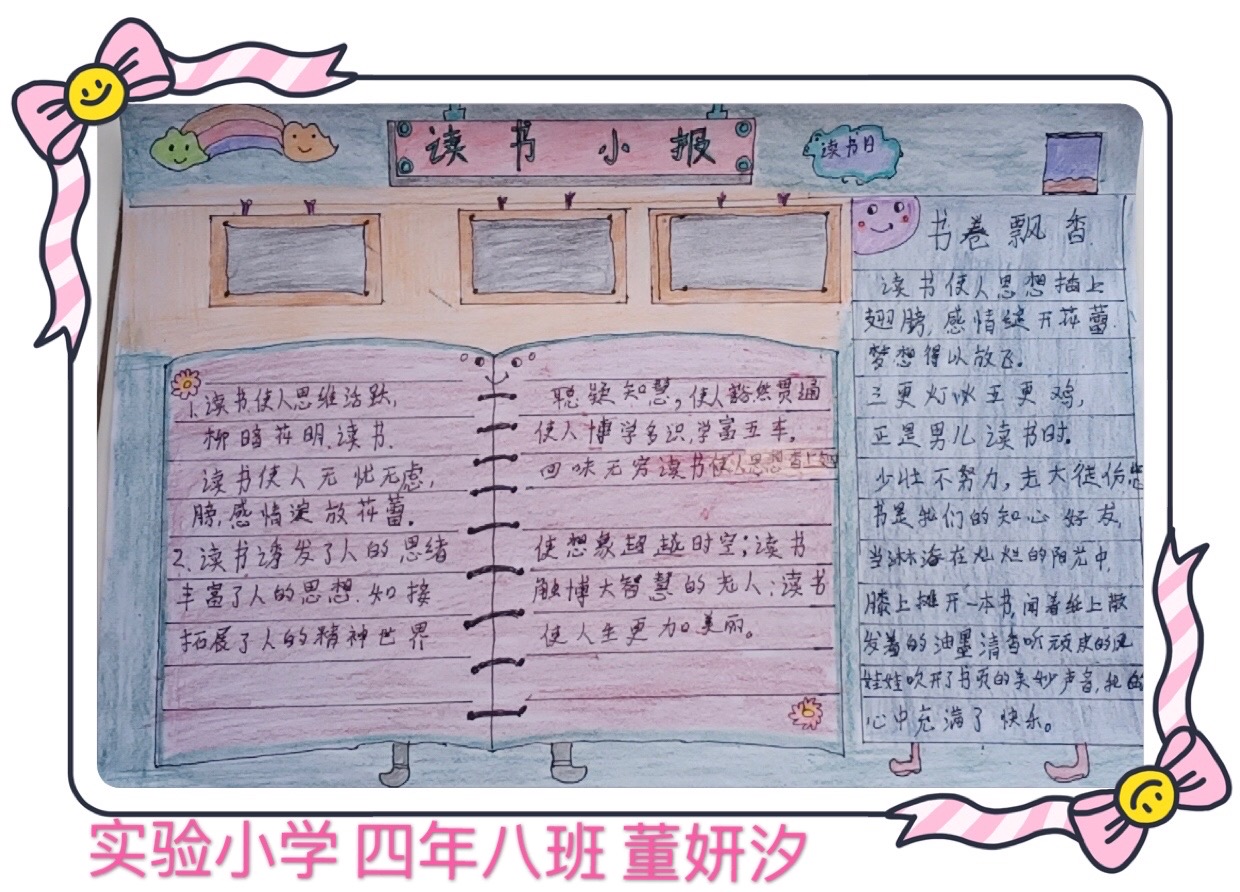 读书小报
读书日
1.读书使人思维活跃,
柳暗花明.读书.
读书使人无忧无虑,
膀,感情绽放花蕾。
2.读书诱发了人的思绪
丰富了人的思想.知接
拓展了人的精神世界
聪颖知慧,使人豁然贯通
使人博学多识,学富五车。
回味无穷读书使人思想
使想象超越时空;读书
触博大智慧的老人;读书
使人生更加美丽。
书卷飘香
读书使人思想插上
翅膀,感情绽开花蕾.
梦想得以放飞。
三更灯火五更鸡,
正是男儿读书时。
少壮不努力,老大徒伤悲
书是我们的知心好友,
当沐浴在灿烂的阳光中,
膝上摊开一本书,闻着纸上散
发着的油墨清香听顽皮的风
娃娃吹开了书页的美妙声音,我的
心中充满了快乐。
实验小学 四年八班 董妍汐